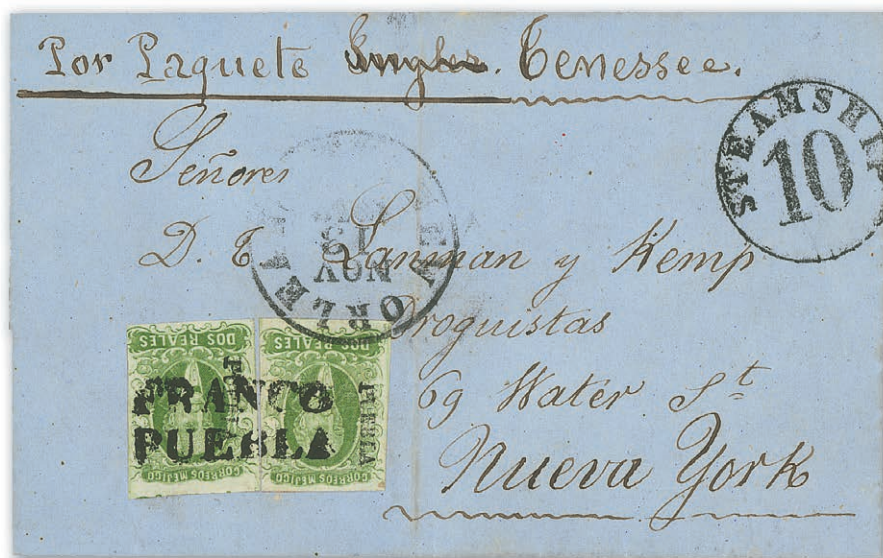 Por Paquete Ingles. Tenessee.
STEAMSHIP
10
Señores
D. T Lanman y Kemp
Droguistas
69 Water St
Nueva York
NEW ORLE
NOV
DOS REALES
DOS REALES
PUEBLA
PUEBLA
FRANCO
PUEBLA
CORREOS MEJICO
CORREOS MEJICO